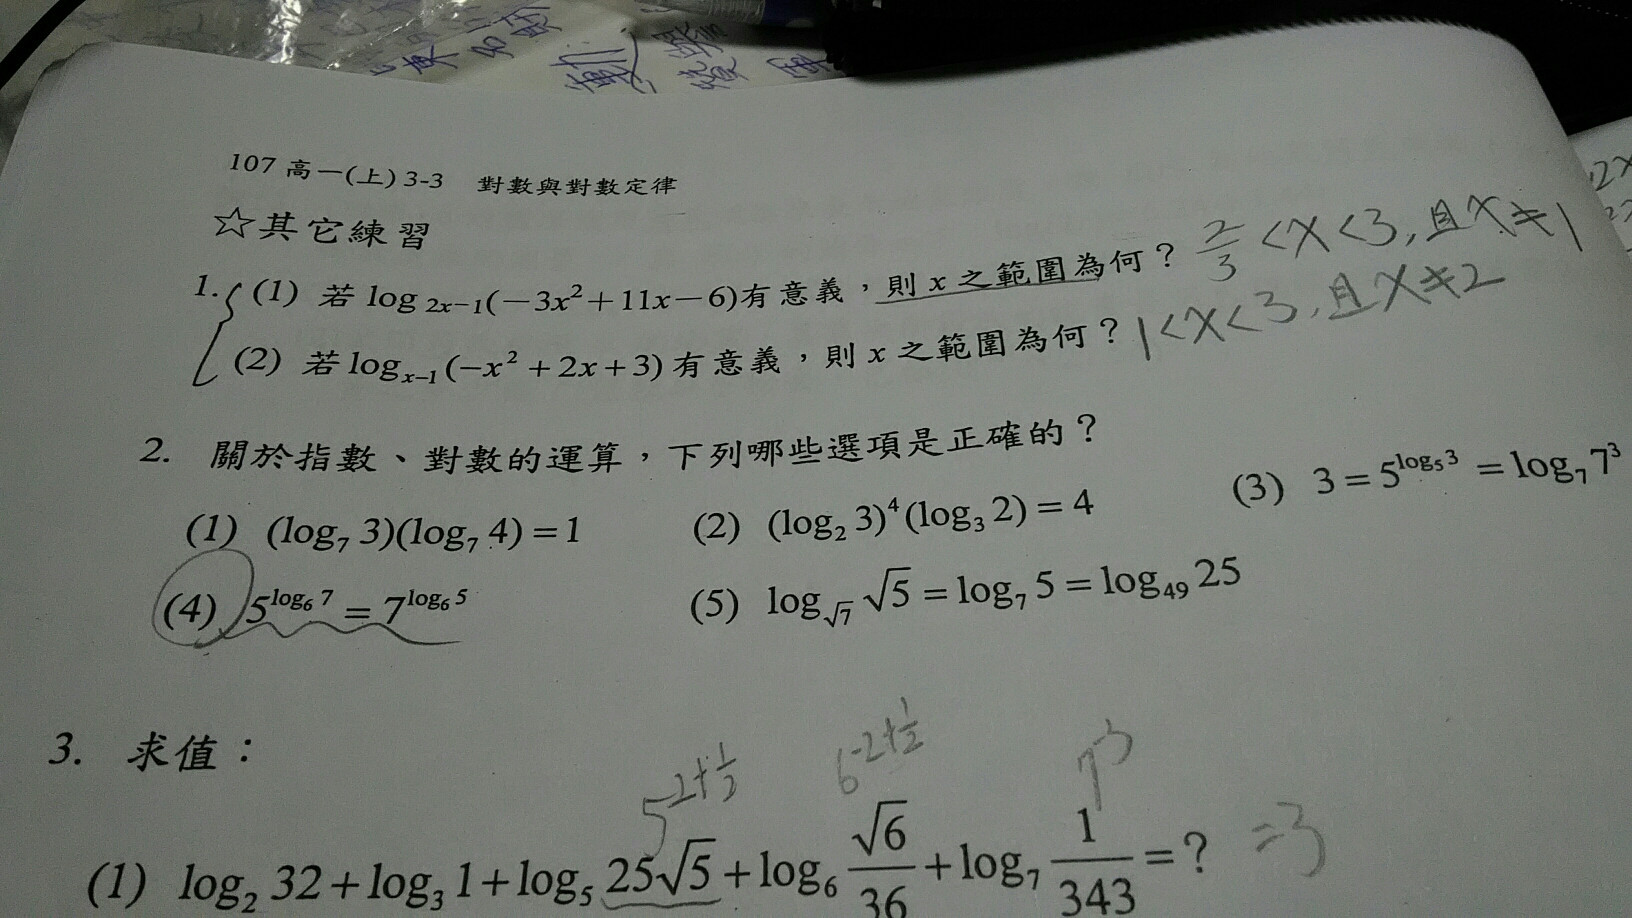 107 高一(上) 3-3 對數與對數定律
☆其它練習
1. (1) 若 log₂ₓ₋₁(−3x²+11x−6)有意義，則 x 之範圍為何？ 2/3 <x<3,且x≠1
(2) 若 logₓ₋₁(−x²+2x+3)有意義，則 x 之範圍為何？ 1<x<3,且x≠2
2. 關於指數、對數的運算，下列哪些選項是正確的？
(1) (log₇ 3)(log₇ 4)=1 (2) (log₂ 3)⁴(log₃ 2)=4 (3) 3=5^(log₅3)=log₇ 7³
(4) 5^(log₆ 7)=7^(log₆ 5) (5) log_√7 √5=log₇ 5=log₄₉ 25
3. 求值：
5^(2+1/2) 6^(-2+1/2) 7^(-3)
(1) log₂ 32+log₃ 1+log₅ 25√5+log₆ √6/36+log₇ 1/343=? =3